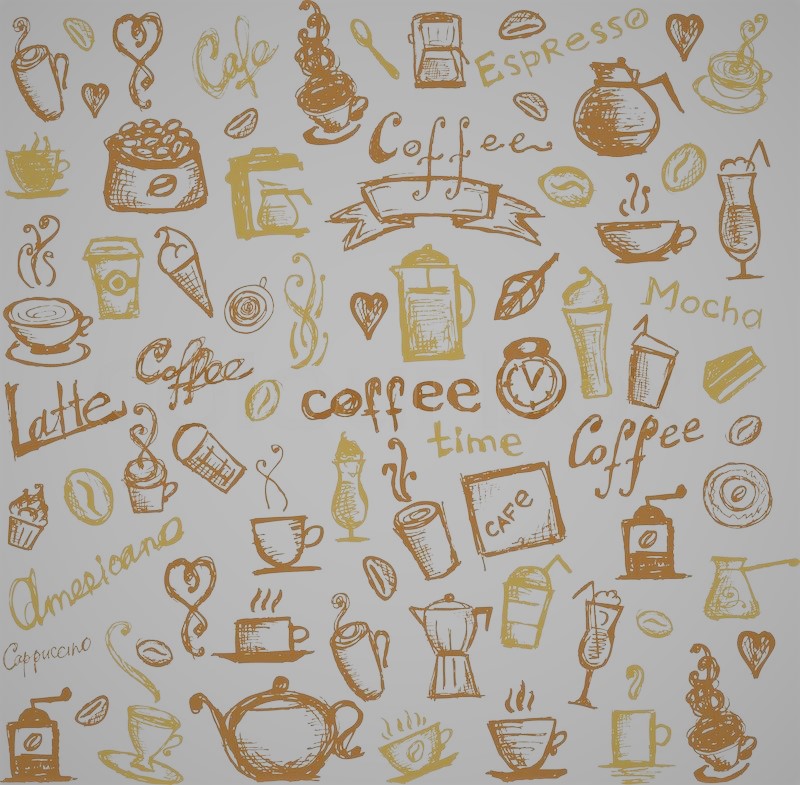 Cafe
Espresso
Coffee
Mocha
Coffee
Latte
coffee
time
Coffee
CAFE
Americano
Cappuccino